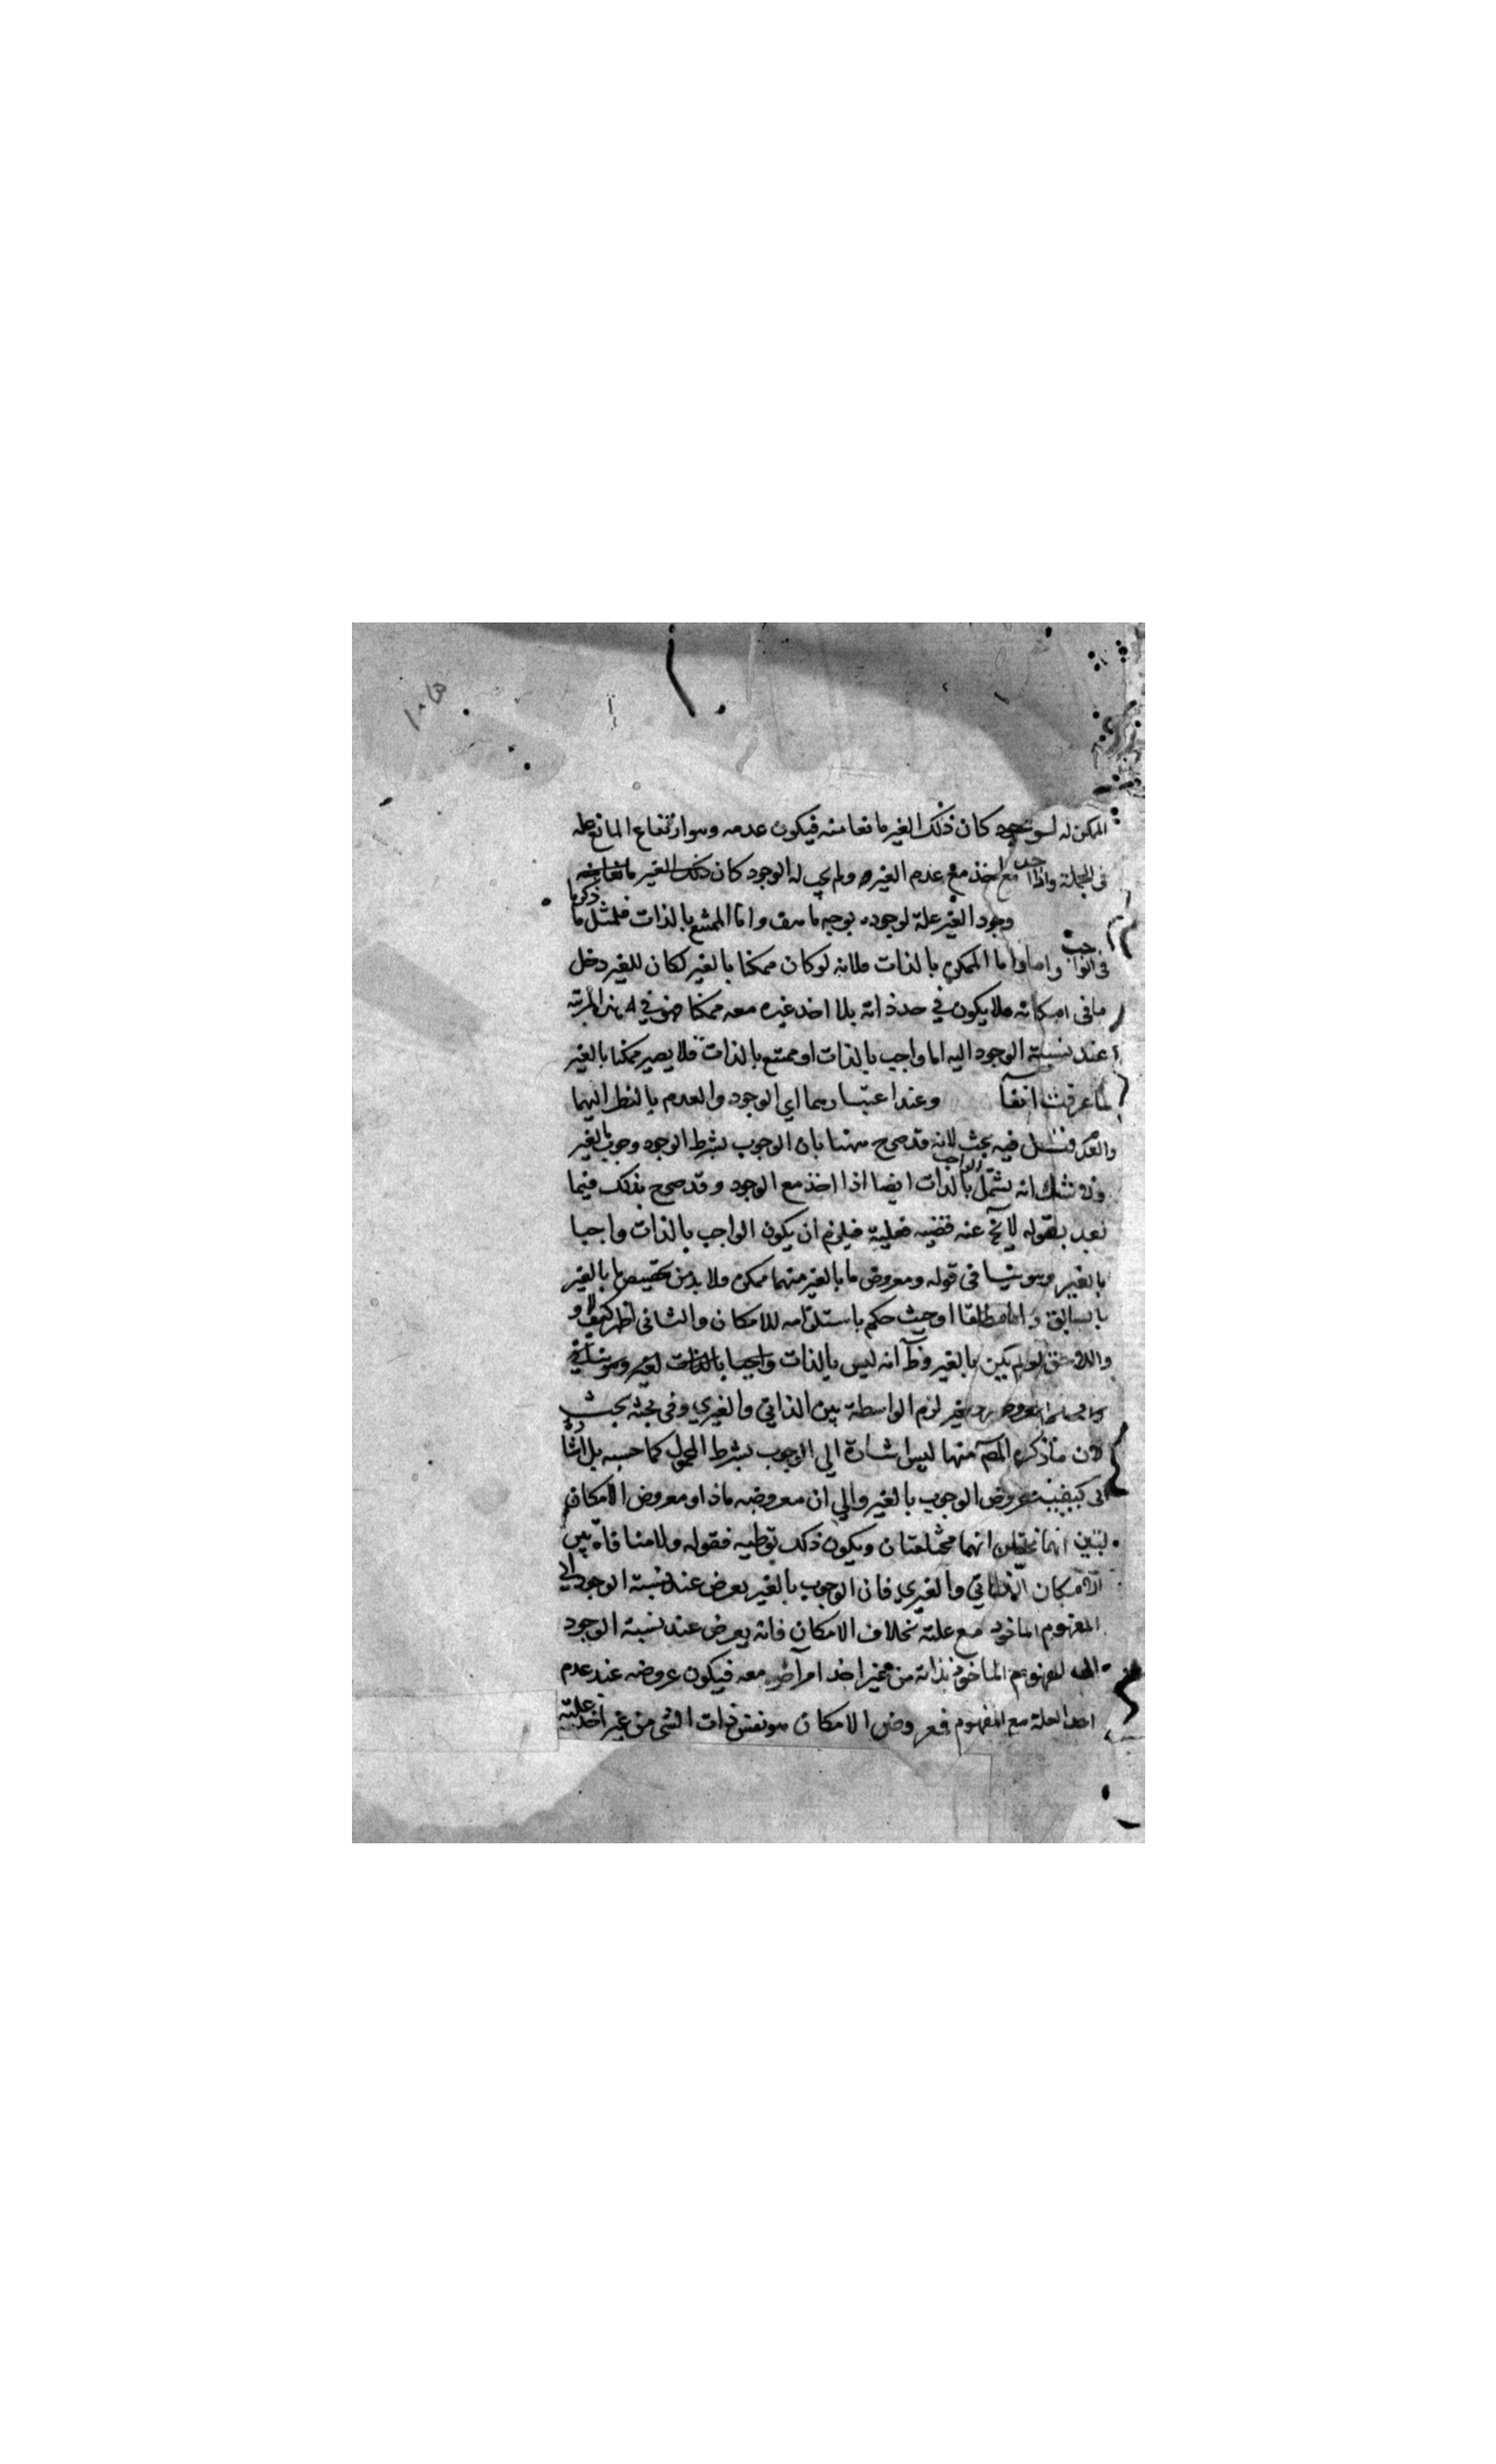 الممكن له لو وجد كان ذلك الغير مانعا منه فيكون عدمه وهو ارتفاع المانع علة
فى الجملة واذا اخذ مع عدم الغير ولم يجب له الوجود كان ذلك الغير
وجود الغير علة لوجوده بوجه ما هف واما الممتنع بالذات فلمثل ما ذكرنا
فى الواجب واما الممكن بالذات فلانه لو كان ممكنا بالغير لكان للغير دخل
ما فى امكانه فلا يكون في حد ذاته بلا اخذ غيره معه ممكنا فهو في هذه المرتبة
عند نسبة الوجود اليه اما واجب بالذات او ممتنع بالذات فلا يصير ممكنا بالغير
لما عرفت انفا وعند اعتبارهما اي الوجود والعدم بالنظر اليهما
فيه بحث لانه قد صرح ههنا بان الوجوب بشرط الوجود وجوب بالغير
ولا شك انه يشمل الواجب بالذات ايضا اذا اخذ مع الوجود وقد صرح بذلك فيما
بعد بقوله لا يخ عنه قضية فعلية فيلزم ان يكون الواجب بالذات واجبا
بالغير وهو ينا فى قوله ومعروض ما بالغير منهما ممكن ولا بد من تخصيص ما بالغير
بالسابق مطلقا او حيث حكم باستلزامه للامكان والثانى اظهر كيف لا و
واللاحق لو لم يكن بالغير وظ انه ليس بالذات
لزم الواسطة بين الذاتي والغيري وفى بحثه بحث
لان ما ذكره المص منها ليس اشارة الي الوجوب بشرط المحمول كما حسبه بل اشارة
الى كيفية عروض الوجوب بالغير والي ان معروضه ماذا ومعروض الامكان
انهما مختلفتان ويكون ذلك توطية فقوله ولا منافاة بين
الامكان الذاتي والغيري فان الوجوب بالغير يعرض عند نسبة الوجود الي
المفهوم الماخوذ مع علته بخلاف الامكان فانه يعرض عند نسبة الوجود
الى المفهوم الماخوذ بذاته من غير اخذ امر آخر معه فيكون عروضه عند عدم
اخذ العلة مع المفهوم فعروض الامكان هو نفس ذات الشى من غير اخذ علته